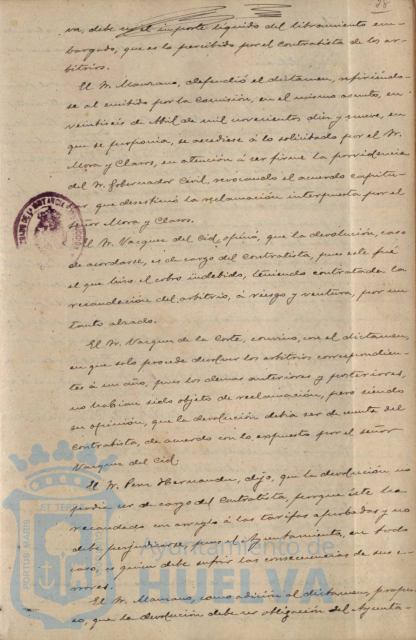 28
va, debe ser el importe líquido del libramiento em-
bargado, que es lo percibido por el contratista de los ar-
bitrios.
El Sr. Manzano, defendió el dictamen, refiriéndo-
se al emitido por la Comisión, en el mismo asunto, en
veintiseis de Abril de mil novecientos diez y nueve, en
que se proponía, se accediese á lo solicitado por el Sr.
Mora y Claros, en atención á ser firme la providencia
del Sr. Gobernador Civil, revocando el acuerdo capitu-
lar que desestimó la reclamación interpuesta por el
señor Mora y Claros.
El Sr. Vazquez del Cid, opinó, que la devolución, caso
de acordarse, es de cargo del Contratista, pues este fué
el que hizo el cobro indebido, teniendo contratada la
recaudación del arbitrio, á riesgo y ventura, por un
tanto alzado.
El Sr. Vazquez de la Corte, convino, con el dictamen,
en que solo procede devolver los arbitrios correspondien-
tes á un año, pues los demas anteriores y posteriores,
no habian sido objeto de reclamación, pero siendo
su opinión, que la devolución debia ser de cuenta del
Contratista, de acuerdo con lo expuesto por el señor
Vazquez del Cid.
El Sr. Hernandez, dijo, que la devolución no
podia ser de cargo del Contratista, porque éste ha
recaudado con arreglo á las tarifas aprobadas y no
debe perjudicarse, pues el Ayuntamiento, en todo
caso, es quien debe sufrir las consecuencias de sus e-
rrores.
El Sr. Manzano, como adición al dictamen, propu-
so, que la devolución debe ser obligación del Ayunta-
PORTUS MARIS ET TERRAE
Ayuntamiento de
HUELVA